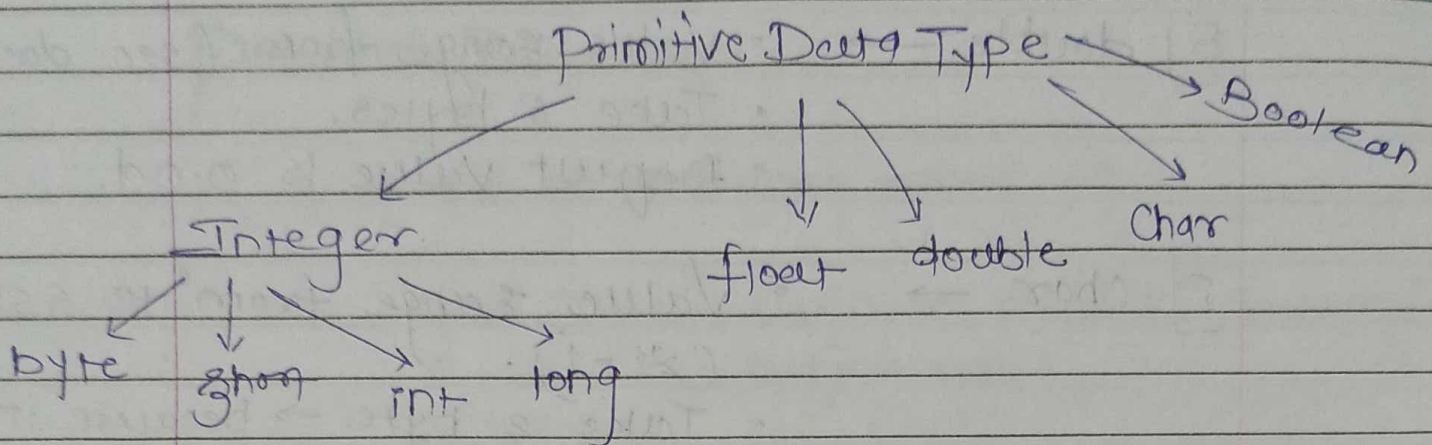 Primitive Data Type
Boolean
Integer
float
double
Char
byte
short
int
long